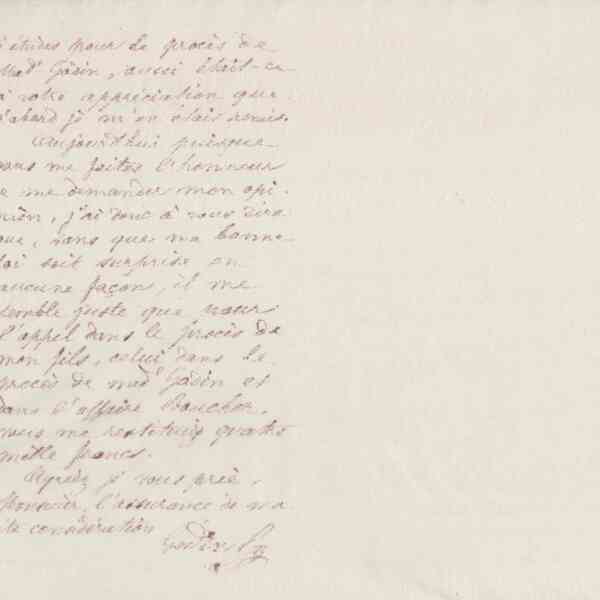 études pour le procès de
Mad<sup>e</sup> Godin, aussi était-ce
à votre appréciation que
d'abord je m'en étais remis.
Aujourd'hui puisque
vous me faites l'honneur
de me demander mon opi-
nion, j'ai donc à vous dire
que, sans que ma bonne
foi soit surprise en
aucune façon, il me
semble juste que pour
l'appel dans le procès de
mon fils, celui dans le
procès de mad<sup>e</sup> Godin et
dans l'affaire Boucher,
vous me restituiez quatre
mille francs.
Agréez je vous prie,
Monsieur, l'assurance de ma
considération
Godin